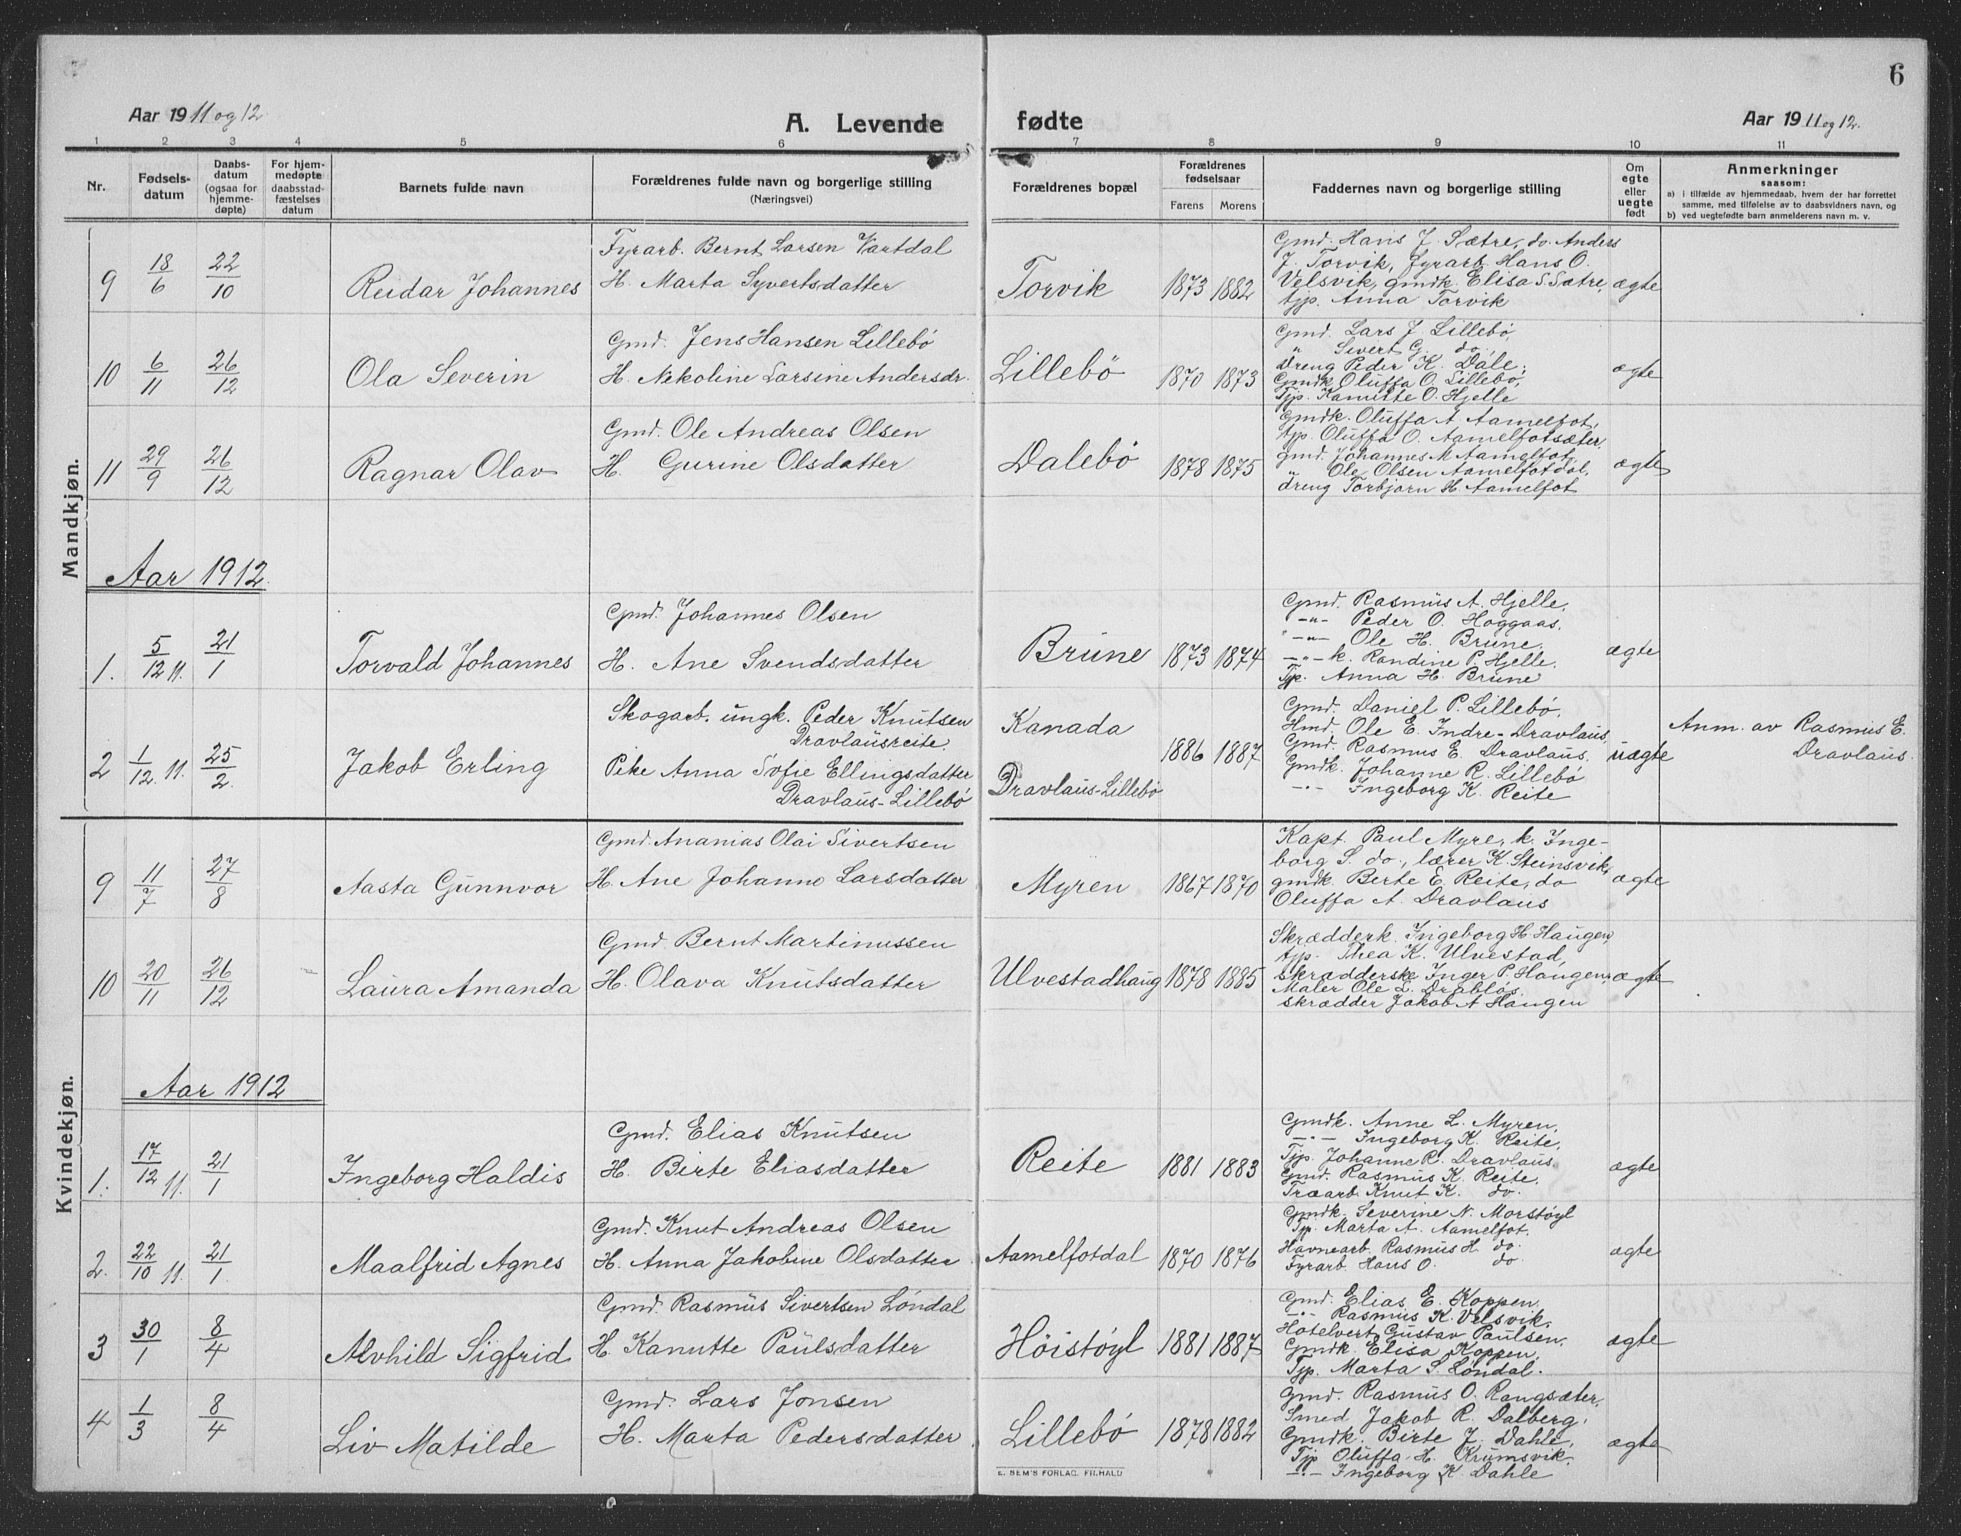 6
Aar 1911 og 12.
A. Levende fødte
Aar 1911 og 12.
1 2 3 4 5 6 7 8 9 10 11
Nr.
Fødsels-
datum
Daabs-
datum
(ogsaa for
hjemme-
døpte)
For hjem-
medøpte
daabsstad-
fæstelses
datum
Barnets fulde navn
Forældrenes fulde navn og borgerlige stilling
(Næringsvei)
Forældrenes bopæl
Forældrenes
fødselsaar
Farens Morens
Faddernes navn og borgerlige stilling
Om
egte
eller
uegte
født
Anmerkninger
saasom:
a) i tilfælde av hjemmedaab, hvem der har forrettet
samme, med tilføielse av to daabsvidners navn, og
b) ved uegtefødte barn anmelderens navn m. v.
Mandkjøn.
9 18/6 22/10 Reidar Johannes
Fyrarb. Bernt Larsen Vartdal
H. Marta Syvertsdatter
Torvik 1873 1882
Gmd. Hans J. Sætre, do. Anders
J. Torvik, fyrarb. Hans O.
Velsvik, gmdk. Elisa S. Sætre,
tjp. Anna Torvik
ægte
10 6/11 26/12 Ola Severin
Gmd. Jens Hansen Lillebø
H. Nekoline Larsine Andersdr.
Lillebø 1870 1873
Gmd. Lars J. Lillebø,
" Sivert G. do,
dreng Peder K. Dale,
Gmdk. Oluffa O. Lillebø,
Tjp. Kanutte O. Hjelle
ægte
11 29/9 26/12 Ragnar Olav
Gmd. Ole Andreas Olsen
H. Gurine Olsdatter
Dalebø 1878 1875
Gmdk. Oluffa A. Aamelfot,
tjp. Oluffa O. Aamelfotsæter,
gmd. Johannes M. Aamelfot,
" Ole Olsen Aamelfotdal,
dreng Torbjørn H. Aamelfot
ægte
Aar 1912.
1. 5/12 11. 21/1 Torvald Johannes
Gmd. Johannes Olsen
H. Ane Svendsdatter
Brune 1873 1874
Gmd. Rasmus A. Hjelle,
-"- Peder O. Hoggaas,
-"- Ole H. Brune,
-"- k. Randine P. Hjelle,
Tjp. Anna H. Brune
ægte
2 1/12 11. 25/2. Jakob Erling
Skogarb. ungk. Peder Knutsen
Dravlausreite.
Pike Anna Sofie Ellingsdatter
Dravlaus-Lillebø
Kanada
Dravlaus-Lillebø
1886 1887
Gmd. Daniel P. Lillebø,
Hmd. Ole E. Indre-Dravlaus,
Gmd. Rasmus E. Dravlaus,
Gmdk. Johanne R. Lillebø
-"- Ingeborg K. Reite
uægte
Anm. av Rasmus E.
Dravlaus.
Kvindekjøn.
9 11/7 27/8 Aasta Gunnvor
Gmd. Ananias Olai Sivertsen
H. Ane Johanne Larsdatter
Myren 1867 1870
Kapt. Paul Myre, k. Inge-
borg S. do, lærer K. Steinsvik,
gmdk. Berte E. Reite, do
Oluffa A. Dravlaus
ægte
10 20/11 26/12 Laura Amanda
Gmd. Bernt Martinussen
H. Olava Knutsdatter
Ulvestadhaug 1878 1885
Skrædderk. Ingeborg H. Haugen,
tjp. Thea K. Ulvestad,
skrædderske Inger P. Haugen,
Maler Ole L. Drabløs,
skrædder Jakob A. Haugen
ægte
Aar 1912
1. 17/12 11. 21/1 Ingeborg Haldis
Gmd. Elias Knutsen
H. Birte Eliasdatter
Reite 1881 1883
Gmdk. Anne L. Myren,
-"- Ingeborg K. Reite,
Tjp. Johanne R. Dravlaus,
Gmd. Rasmus K. Reite,
Træarb. Knut K. do.
ægte
2. 22/10 11. 21/1. Maalfrid Agnes
Gmd. Knut Andreas Olsen
H. Anna Jakobine Olsdatter
Aamelfotdal 1870 1876
Gmdk. Severine N. Morstøyl
Tjp. Marta A. Aamelfot,
Havnearb. Rasmus H. do.
Fyrarb. Hans O. do
ægte
3 30/1 8/4 Alvhild Sigfrid
Gmd. Rasmus Sivertsen Løndal
H. Kanutte Paulsdatter
Høistøyl 1881 1887
Gmd. Elias E. Koppen,
-"- Rasmus K. Velsvik,
Hotelvert Gustav Paulsen,
Gmdk. Elisa Koppen,
Tjp. Marta S. Løndal.
ægte
4 1/3 8/4 Liv Matilde
Gmd. Lars Jonsen
H. Marta Pedersdatter
Lillebø 1878 1882
Gmd. Rasmus O. Rangsæter,
Smed Jakob R. Dalberg,
Gmdk. Birte J. Dahle,
Tjp Oluffa H. Krumsvik,
-"- Ingeborg K Dahle
ægte
E. SEM'S FORLAG, FR.HALD